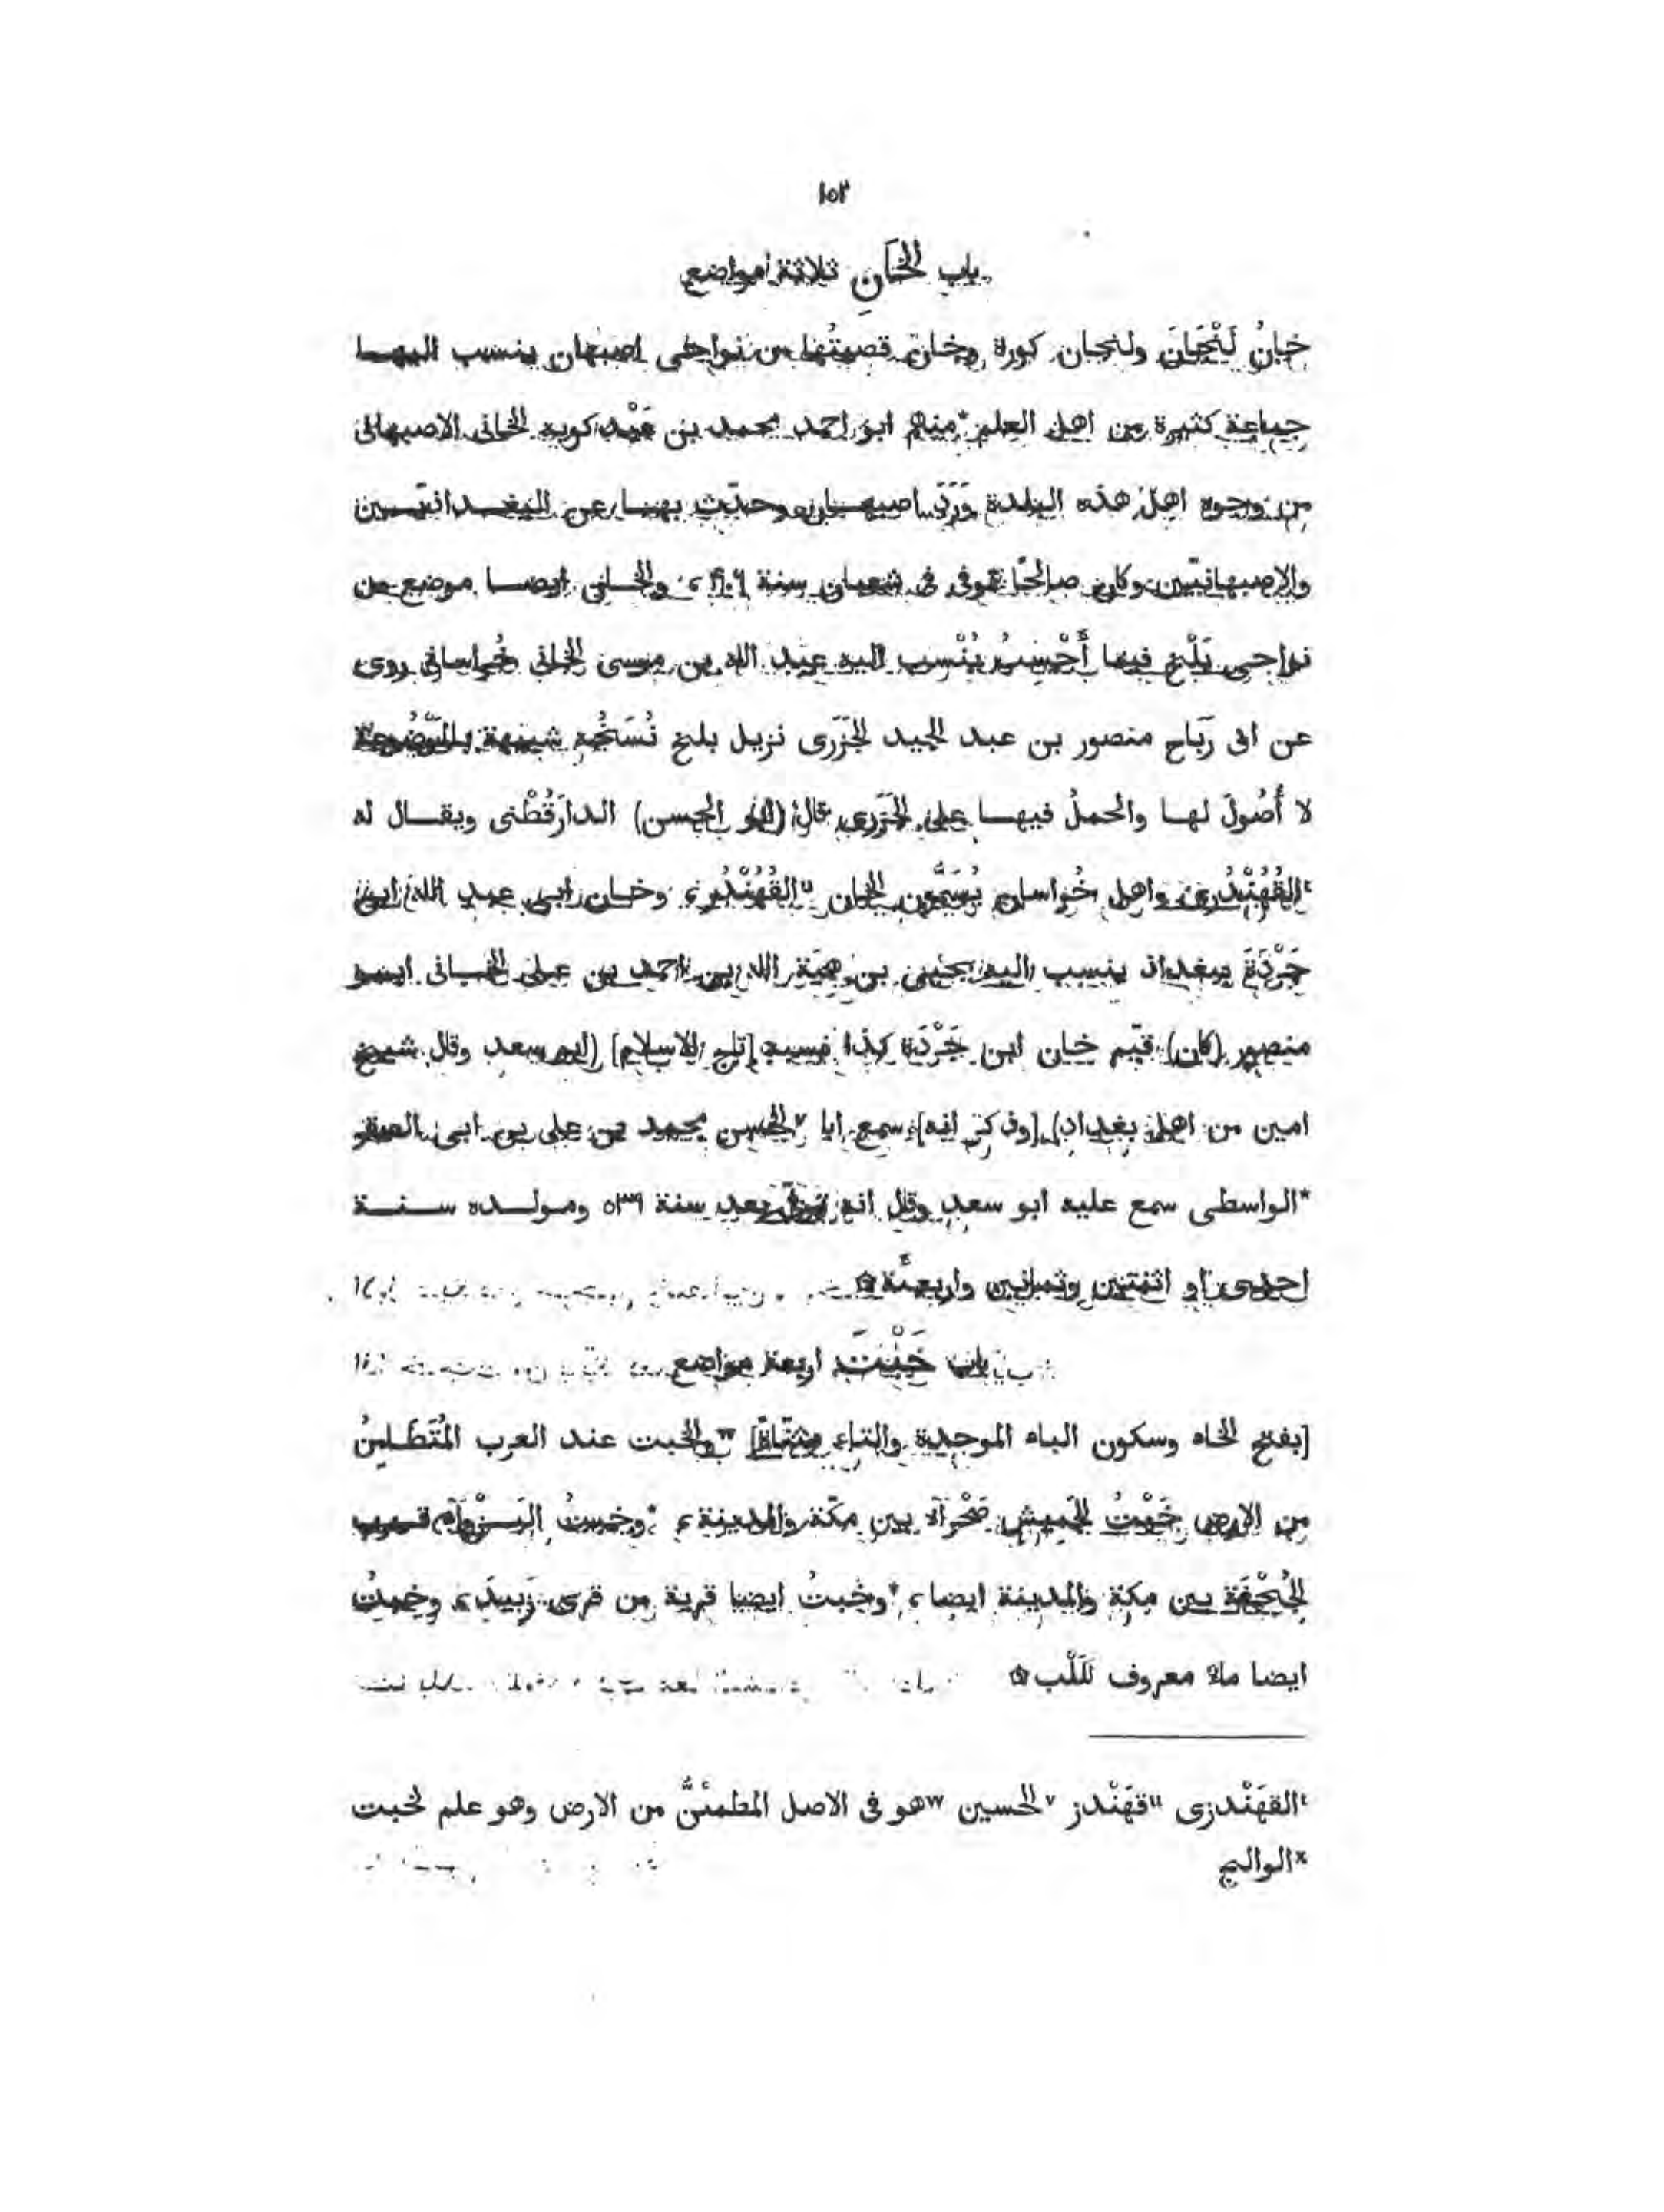 ١٥٣
باب الخَانِ ثلاثة مواضع
خَانُ لَنْجَانَ ولنجان كورة وخان قصبتُها من نواحى اصبهان ينسب اليهـا
جماعة كثيرة من اهل العلم *منهم ابو احمد محمد بن عَبْدكويه الخانى الاصبهانى
من وجوه اهل هذه البلدة وَرَدَ اصبهـان وحدّث بهـا عن البغـداديّـين
والاصبهانيّين وكان صالحًا توفى فى شعبان سنة ۴۰۶، والخـان ايضـا موضع من
نواحى بَلْخ فيما أَحْسِبُ يُنْسب اليه عبد الله بن موسى الخانى خُراسانى روى
عن ابى رَبَاح منصور بن عبد الحميد الجَزَرى نزيل بلخ نُسْخَة شبيهة بالمَوْضُوعة
لا أُصُولَ لهـا والحملُ فيهـا على الجَزَرى قال (ابو الحسن) الدارَقُطْنى ويقـال له
ᵗالقُهُنْدُزى واهل خُراسان يُسَمُّون الخان ᵘالقُهُنْدُز، وخـان ابى عبد الله ابن
جَرْدَةَ ببغداد ينسب اليه يحيى بن هبة الله بن احمد بن على الخـانى ابـو
منصور (كان) قيّم خان ابن جَرْدَة كذا نسبه [تاج الاسلام] (ابو سعد وقال شيخ
امين من اهل بغداد) [وذكر انه] سمع ابا ᵛالحسن محمد بن على بن ابى الصقر
ˣالـواسطى سمع عليه ابو سعد وقال انه توفى بعد سنة ٥٣٩ ومـولـده سـنـة
احدى او اثنتين وثمانين واربعمئة۞
باب خَبْتَ اربعة مواضع
[بفتح الخاء وسكون الباء الموحدة والتاء مثنّاة] ʷوالخبت عند العرب المُتَطَـامِنُ
من الارض خَبْتُ الجَميش صَحْرآء بين مكّة والمدينة، *وخبتُ البَـزْوآء قـريب
الجُحْفَة بين مكة والمدينة ايضا، *وخبتُ ايضا قرية من قرى زَبيدَ، وخبتُ
ايضا ماء معروف لكَلْب۞
ᵗالقهَنْدزى ᵘقهَنْدز ᵛالحسين ʷهو فى الاصل المطمئنُّ من الارض وهو علم لخبت
ˣالوالبج